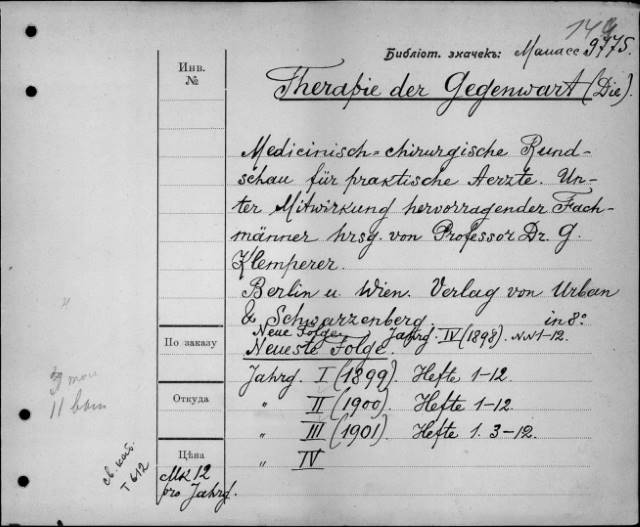 144
Библіот. значекъ: Манасс 9775.
Инв.
№
Therapie der Gegenwart (Die).
Medicinisch-chirurgische Rund-
schau für praktische Aerzte. Un-
ter Mitwirkung hervorragender Fach-
männer hrsg. von Professor Dr. G.
Klemperer.
Berlin u. Wien. Verlag von Urban
& Schwarzenberg in 8º
Neue Folge. Jahrg. IV (1898). NN 1-12.
По заказу
Neueste Folge.
Jahrg. I (1899). Hefte 1-12
Откуда
" II (1900). Hefte 1-12.
" III (1901). Hefte 1. 3-12.
Цѣна
" IV
Mk 12
pro Jahrg.
св. каб.
T 612